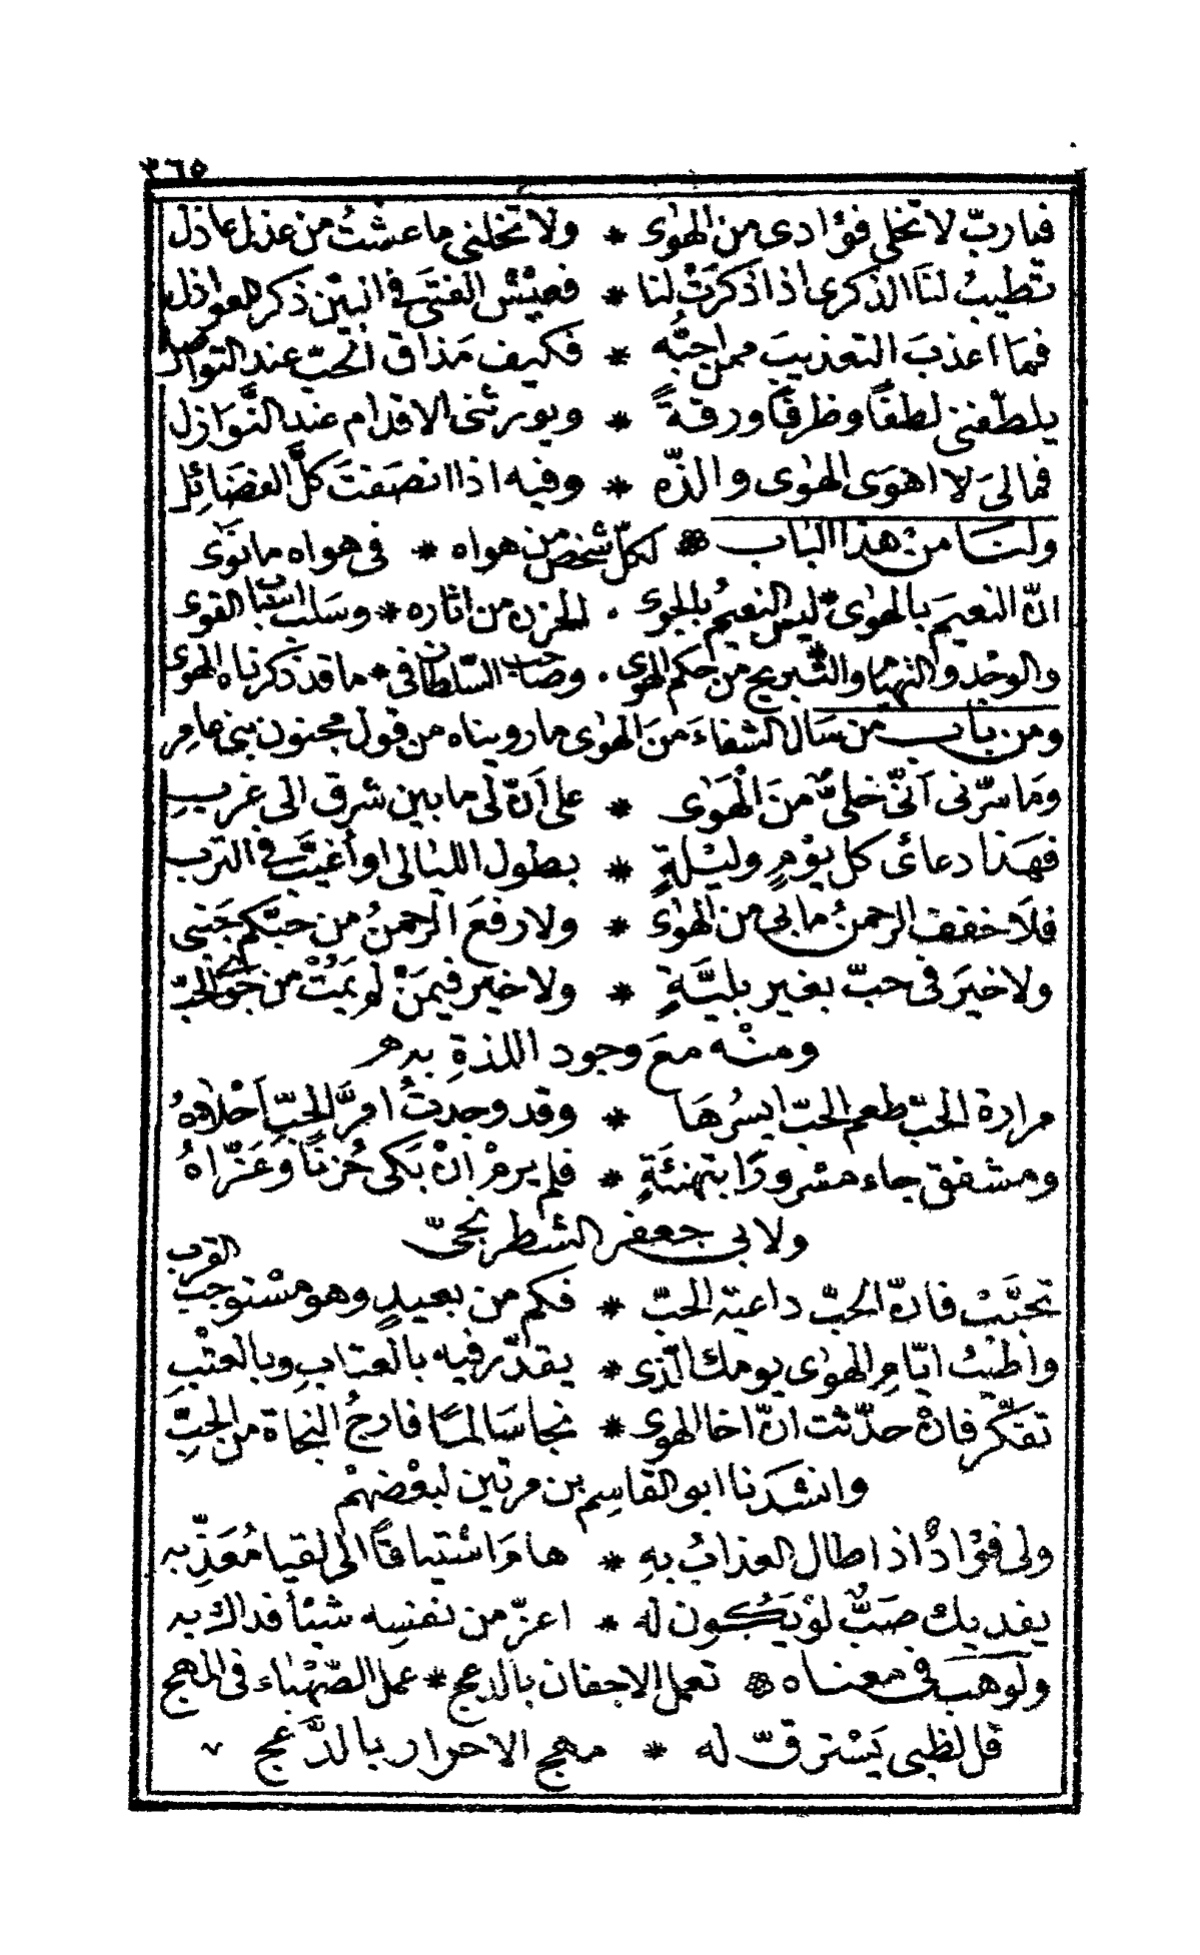 ٣٦٥
فيا ربّ لا تخلى فؤادى من الهوى * ولا تخلنى ما عشتُ من عذل عاذل
تطيبُ لنا الذكرى اذا ذكرتْ لنا * فعيْش الفتى فى انبتن ذكر العواذل
فما اعذبَ التعذيبَ ممن احبُّه * فكيف مذاق الحبّ عند التواصل
يلطّفنى لطفًا وظرفًا ورقةً * ويورثنى الاقدام عند النَّوازل
فمالىَ لا اهوَى الهوى والذّه * وفيه اذا انصفتَ كلَّ الفضائل
ولنا من هذا الباب لكلّ شخص من هواه * فى هواه ما نوى
انّ النعيمَ بالهوى * ليس النعيمُ بالجوى . للحزن من اثاره * وسلب اسباب القوى
والوجد والتهيام والتبريح من حكم الهوى . وصاحب السّلطان فى * ما قد ذكرناه الهوى
ومن باب من سَال الشفاءَ منَ الهوى ما رويناه من قول مجنون بنى عامر
ومَا سرّنى اَنّى خلىٌّ منَ الْهَوى * على اَنّ لى ما بين شرق الى غربِ
فهَذا دعائى كل يوْمٍ وليْلةٍ * بطول الليالى او اُغيَّب فى الترب
فلَا خفف الرحمنُ ما بى من الهوى * ولا رفعَ الرحمنُ من حبّكم جَنبى
ولا خيرَ فى حبّ بغير بليَّةٍ * ولا خيْر فيمَنْ لم يمُتْ من جوى الحبّ
ومنْه معَ وجود اللذةِ به
مرارة الحبّ طعم الحبّ ايسرُها * وقد وجدتُ امرَّ الحبّ اَحْلاهُ
ومشفق جاء مسْرورًا بتهنئَةٍ * فلم يرمْ انْ بَكى حُزنًا وعَزّاهُ
ولابى جعفر الشطرنجىّ
تحبَّبْ فانّ الحبّ داعية الحبّ * فكم من بعيدٍ وهو مسْتوجب القرب
واَطيَبُ ايّامِ الهوى يومك الّذى * يقدّر فيه بالعتابِ وبالعتْبِ
تفكّر فانْ حدّثت انّ اخا الهوى * نجا سَالمًا فارجُ النجاة من الحبِّ
وانشدَنا ابو القاسم بن مرتين لبعْضهمْ
ولى فؤادٌ اذا طال العذابُ بهِ * هامَ اشْتياقًا الى لقيا مُعَذِّبه
يفديك صبٌّ لوْ يَكُون له * اعزّ من نفسِه شيْأ فداك به
ولوَهب فى معناه تعمل الاجفان بالدعج * عمل الصّهباء فى المهج
قل لظبى يَسْترقّ له * مهج الاحرار بالدَّعج